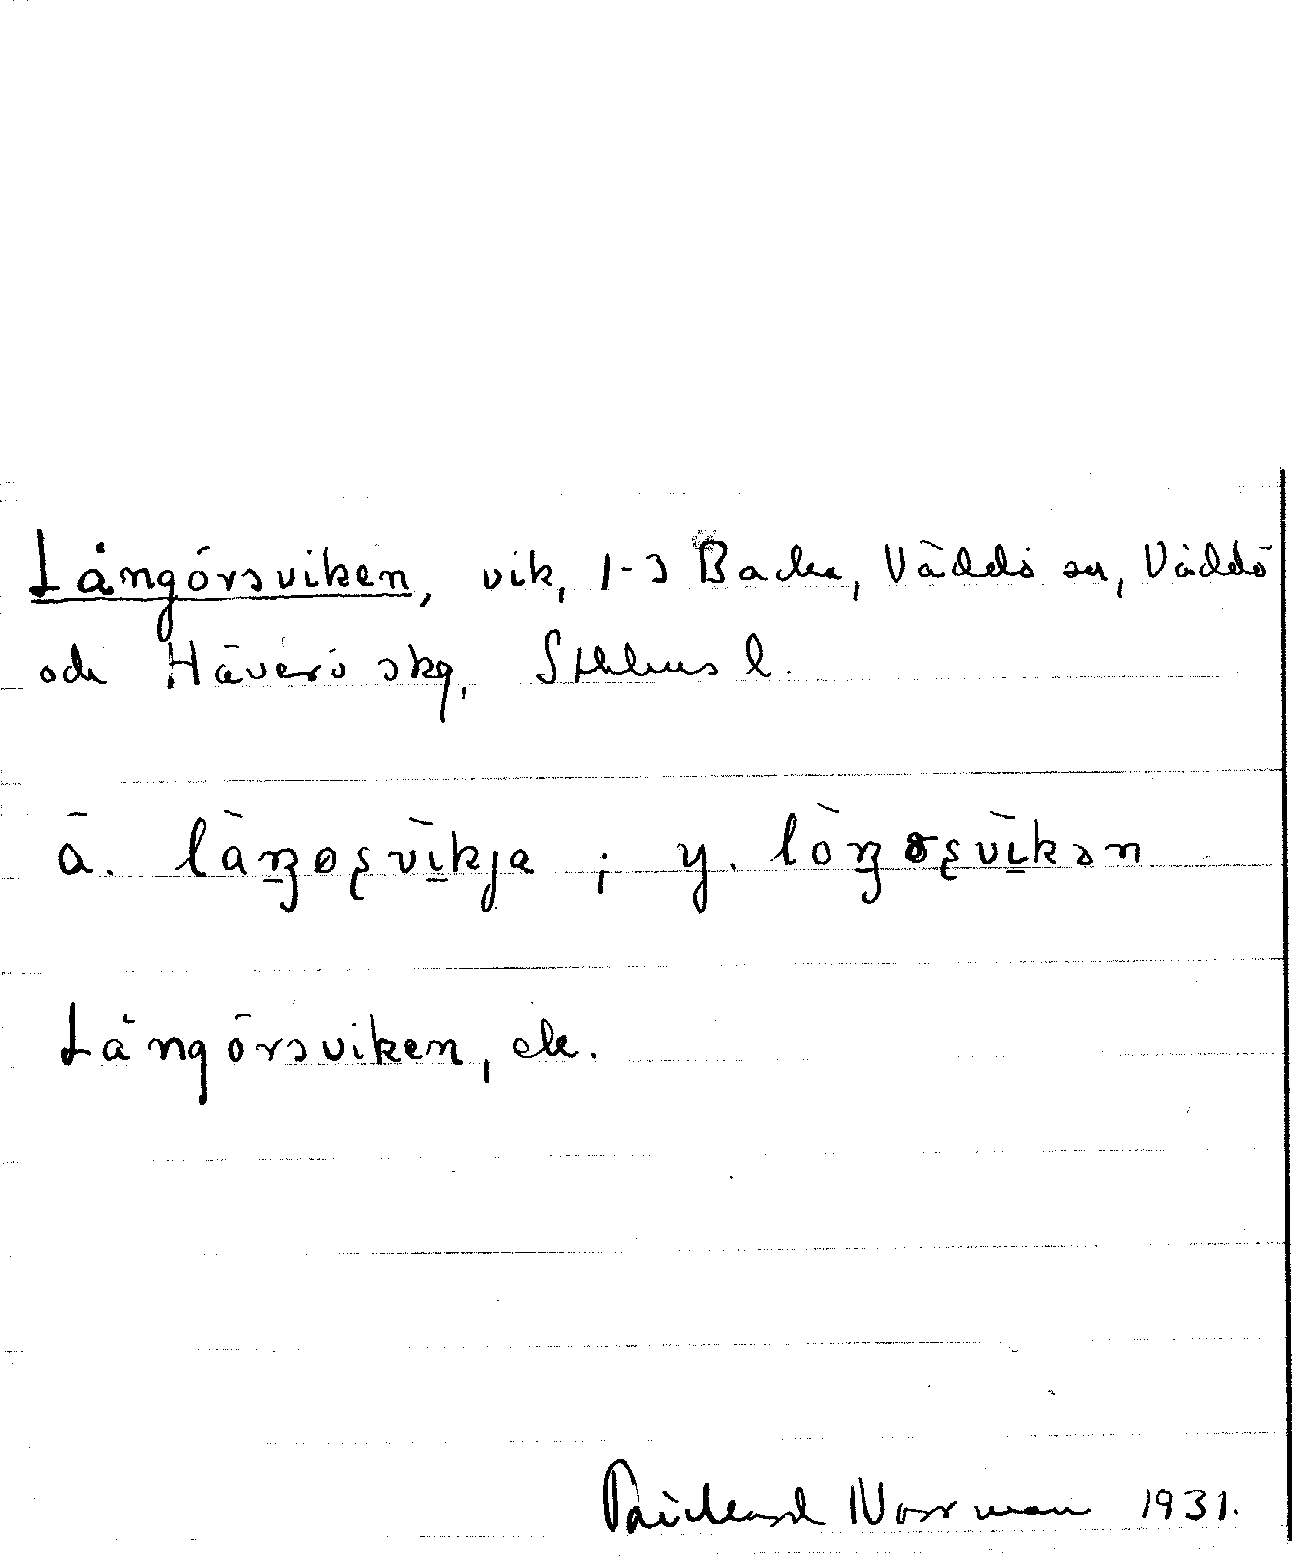 Långörsviken, vik, 1-3 Backa, Väddö sn, Väddö
och Häverö skg, Sthlms l.
ä. làŋoʂvìkja ; y. lòŋɵʂvìkən
Långörsviken, ek.
Rickard Norrman 1931.